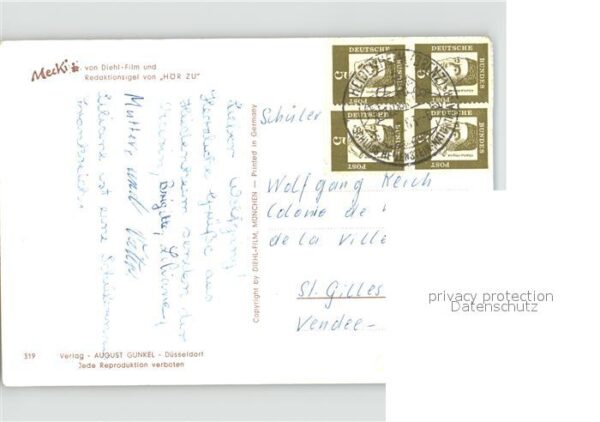 Mecki
von Diehl-Film und
Redaktionsigel von „HÖR ZU"
Lieber Wolfgang!
Herzliche Grüße aus
Heidenheim senden dir
Brigitte, Liliane,
Mutter und Vater
Liliane ist eine
319
Verlag - AUGUST GUNKEL - Düsseldorf
Jede Reproduktion verboten
Copyright by DIEHL-FILM, MÜNCHEN — Printed in Germany
DEUTSCHE BUNDESPOST 5
DEUTSCHE BUNDESPOST 5
DEUTSCHE BUNDESPOST 5
DEUTSCHE BUNDESPOST 5
Schüler
Wolfgang Reich
Colonie de
de la Ville
St. Gilles
Vendee-
privacy protection
Datenschutz